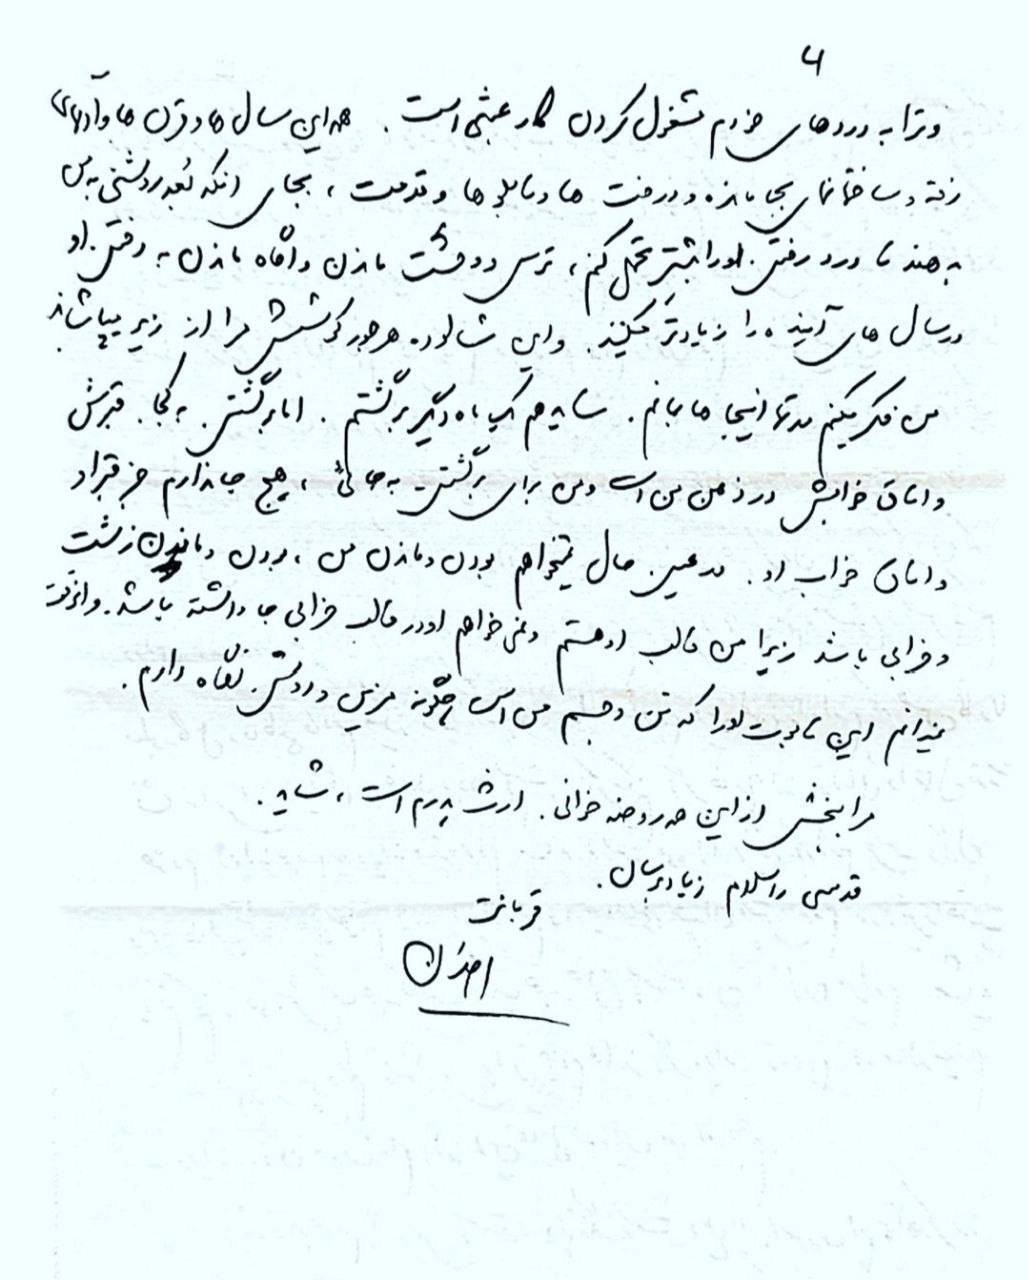 ۴
و ترا به دردهای خودم مشغول کردن کار عبثی است. همه این سال ها و قرن ها و آدمهای
رفته و ساختمانهای بجا مانده و درخت ها و تابلو ها و قدمت، بجای اینکه بُعد روشنی به من
بدهند تا درد رفتن او را بهتر تحمل کنم، ترس و وحشت ماندن و آگاه ماندن به رفتن او
در سال های آینده را زیادتر میکنند. و این شالوده هر جور کوشش مرا از زیر میپاشاند.
من فکر میکنم مدتها اینجا ها بمانم. شاید هم یک ماه دیگر برگشتم. اما برگشتن. به کجا. قبرش
و اتاق خوابش در ذهن من است و من برای برگشتن به جائی، هیچ جا ندارم جز قبر او
و اتاق خواب او. در عین حال نمیخواهم بودن و ماندن من، بودن و ماندن زشت
و خرابی باشد زیرا من قالب او هستم و نمی خواهم او در قالب خرابی جا داشته باشد. و آنوقت
نمیدانم این تابوت او را که تن و جسم من است چگونه مزین و روشن نگاه دارم.
مرا ببخش از این همه روضه خوانی. ارث پدرم است، شاید.
قدسی را سلام زیاد برسان.
قربانت